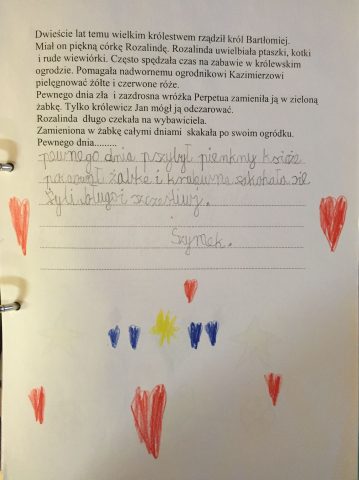 Dwieście lat temu wielkim królestwem rządził król Bartłomiej.
Miał on piękną córkę Rozalindę. Rozalinda uwielbiała ptaszki, kotki
i rude wiewiórki. Często spędzała czas na zabawie w królewskim
ogrodzie. Pomagała nadwornemu ogrodnikowi Kazimierzowi
pielęgnować żółte i czerwone róże.
Pewnego dnia zła i zazdrosna wróżka Perpetua zamieniła ją w zieloną
żabkę. Tylko królewicz Jan mógł ją odczarować.
Rozalinda długo czekała na wybawiciela.
Zamieniona w żabkę całymi dniami skakała po swoim ogródku.
Pewnego dnia..........
pewnego dnia pszybył pienkny
żabke i
żyli długo i
Szymek.